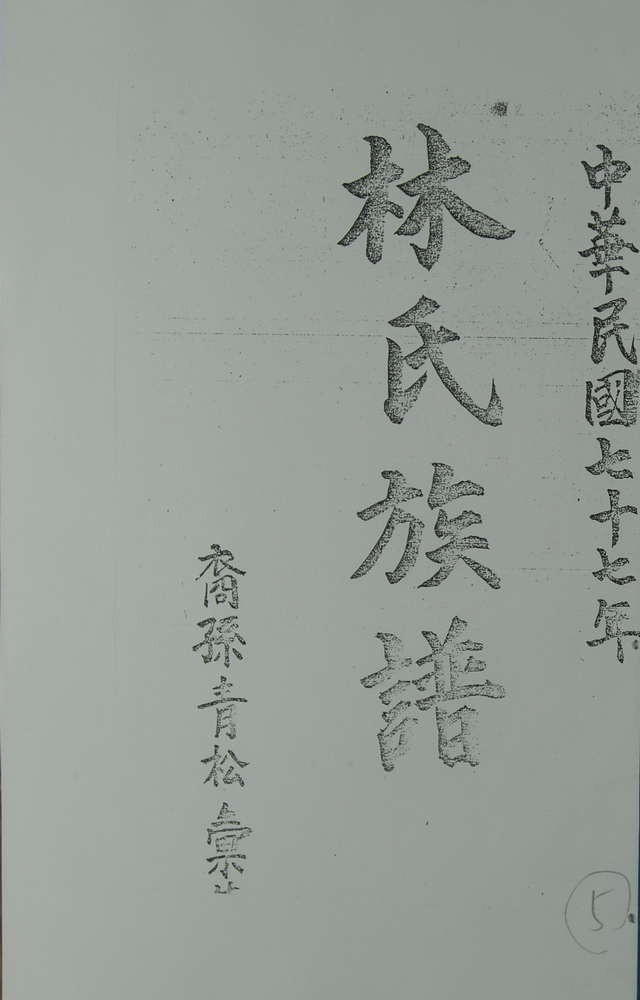 中華民國七十七年
林氏族譜
裔孫青松彙
5